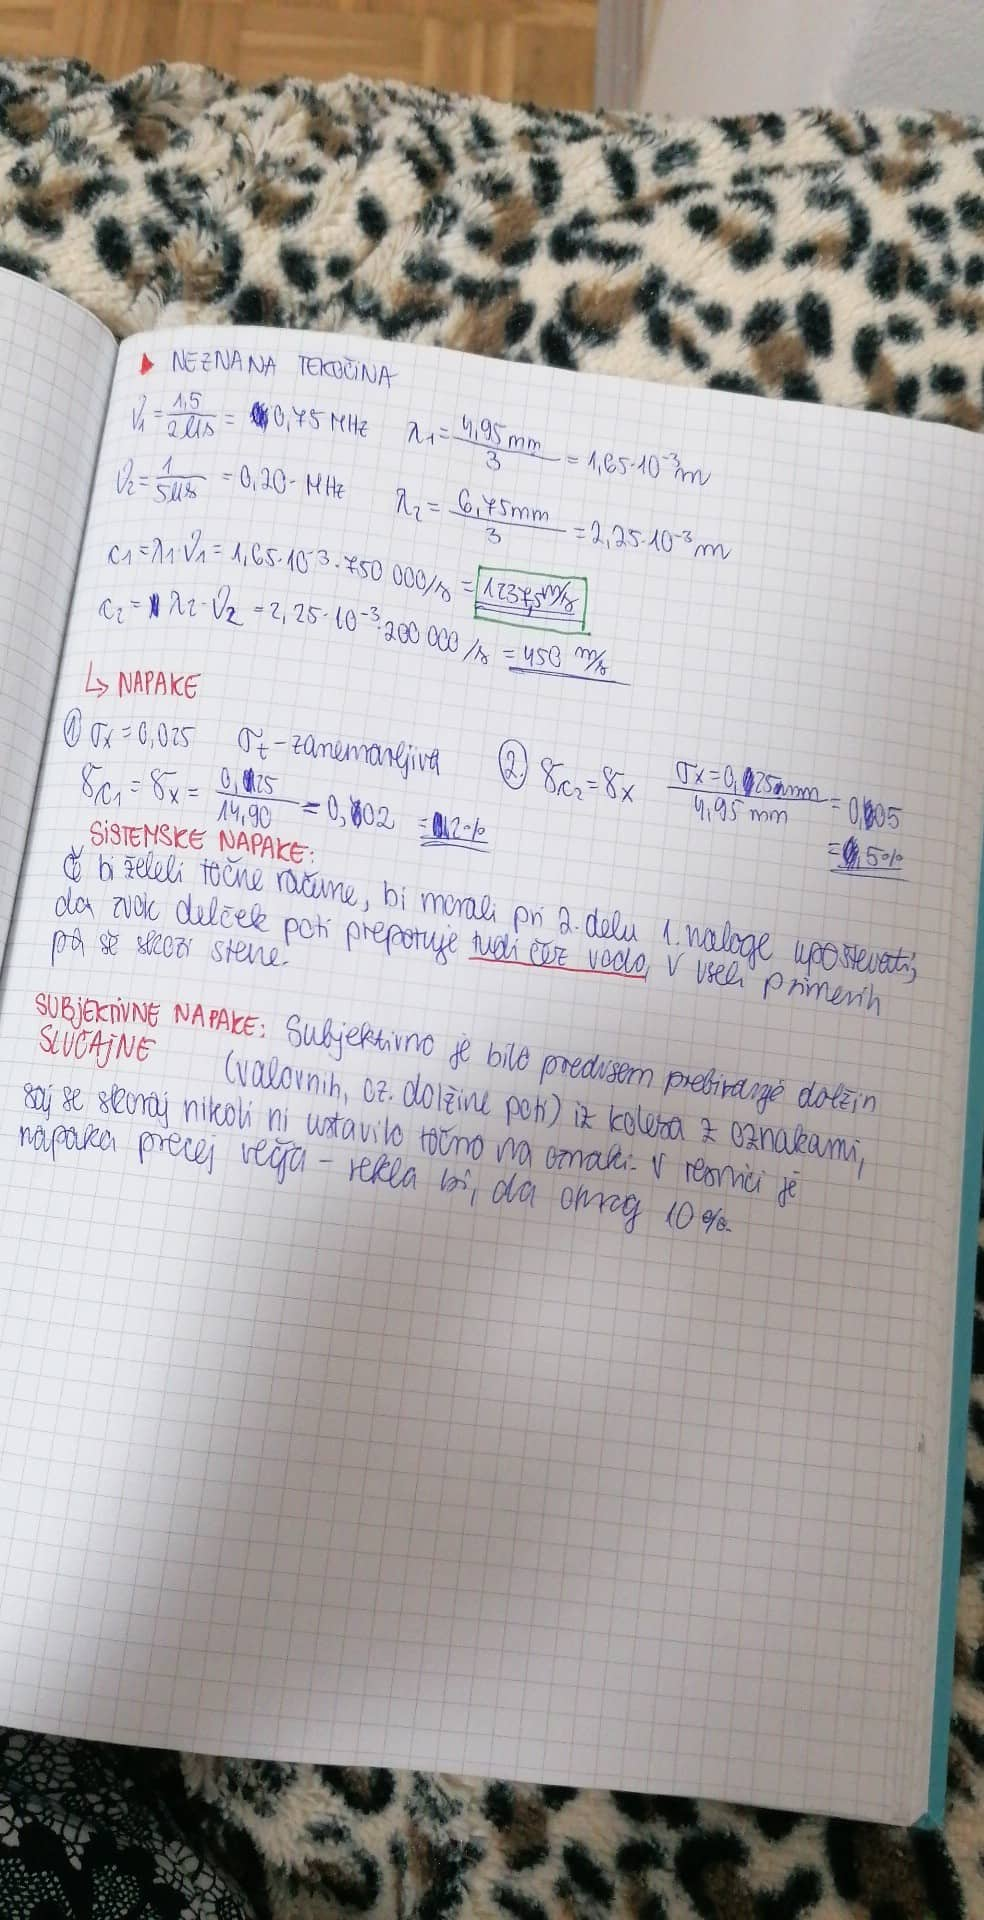 NEZNANA TEKOČINA
ν₁ = 1,5 / 2 μs = 0,75 MHz λ₁ = 4,95 mm / 3 = 1,65·10⁻³ m
ν₂ = 1 / 5 μs = 0,20 MHz λ₂ = 6,75 mm / 3 = 2,25·10⁻³ m
c₁ = λ₁·ν₁ = 1,65·10⁻³·750 000/s = 1237,5 m/s
c₂ = λ₂·ν₂ = 2,25·10⁻³·200 000/s = 450 m/s
↳ NAPAKE
① σx = 0,025 σt - zanemarljiva ② δc₂ = δx σx = 0,025 mm / 4,95 mm = 0,005
δc₁ = δx = 0,025 / 14,90 = 0,002 = 0,2 % = 0,5 %
SISTEMSKE NAPAKE:
Če bi želeli točne račune, bi morali pri 2. delu 1. naloge upoštevati,
da zvok delček poti prepotuje tudi čez vodo, v vseh primerih
pa še skozi stene.
SUBJEKTIVNE NAPAKE: Subjektivno je bilo predvsem prebiranje dolžin
SLUČAJNE (valovnih, oz. dolžine poti) iz kolesa z oznakami,
saj se skoraj nikoli ni ustavilo točno na oznaki. V resnici je
napaka precej večja - rekla bi, da okrog 10 %.